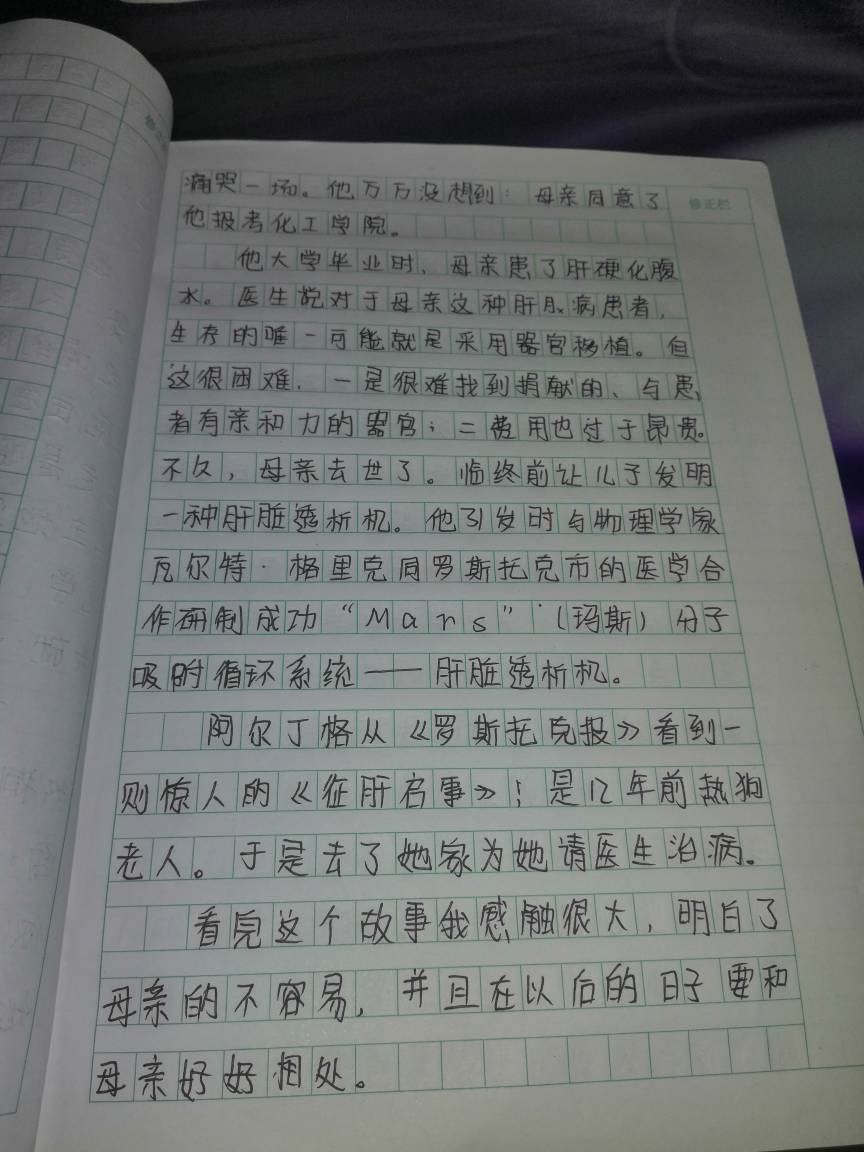 痛哭一场。他万万没想到：母亲同意了
修正栏
他报考化工学院。
他大学毕业时，母亲患了肝硬化腹
水。医生说对于母亲这种肝脏病患者，
生存的唯一可能就是采用器官移植。但
这很困难，一是很难找到捐献的、与患
者有亲和力的器官；二费用也过于昂贵。
不久，母亲去世了。临终前让儿子发明
一种肝脏透析机。他引发时与物理学家
瓦尔特·格里克同罗斯托克市的医学合
作研制成功“Mars”（玛斯）分子
吸附循环系统——肝脏透析机。
阿尔丁格从《罗斯托克报》看到一
则惊人的《征肝启事》！是12年前热狗
老人。于是去了她家为她请医生治病。
看完这个故事我感触很大，明白了
母亲的不容易，并且在以后的日子要和
母亲好好相处。